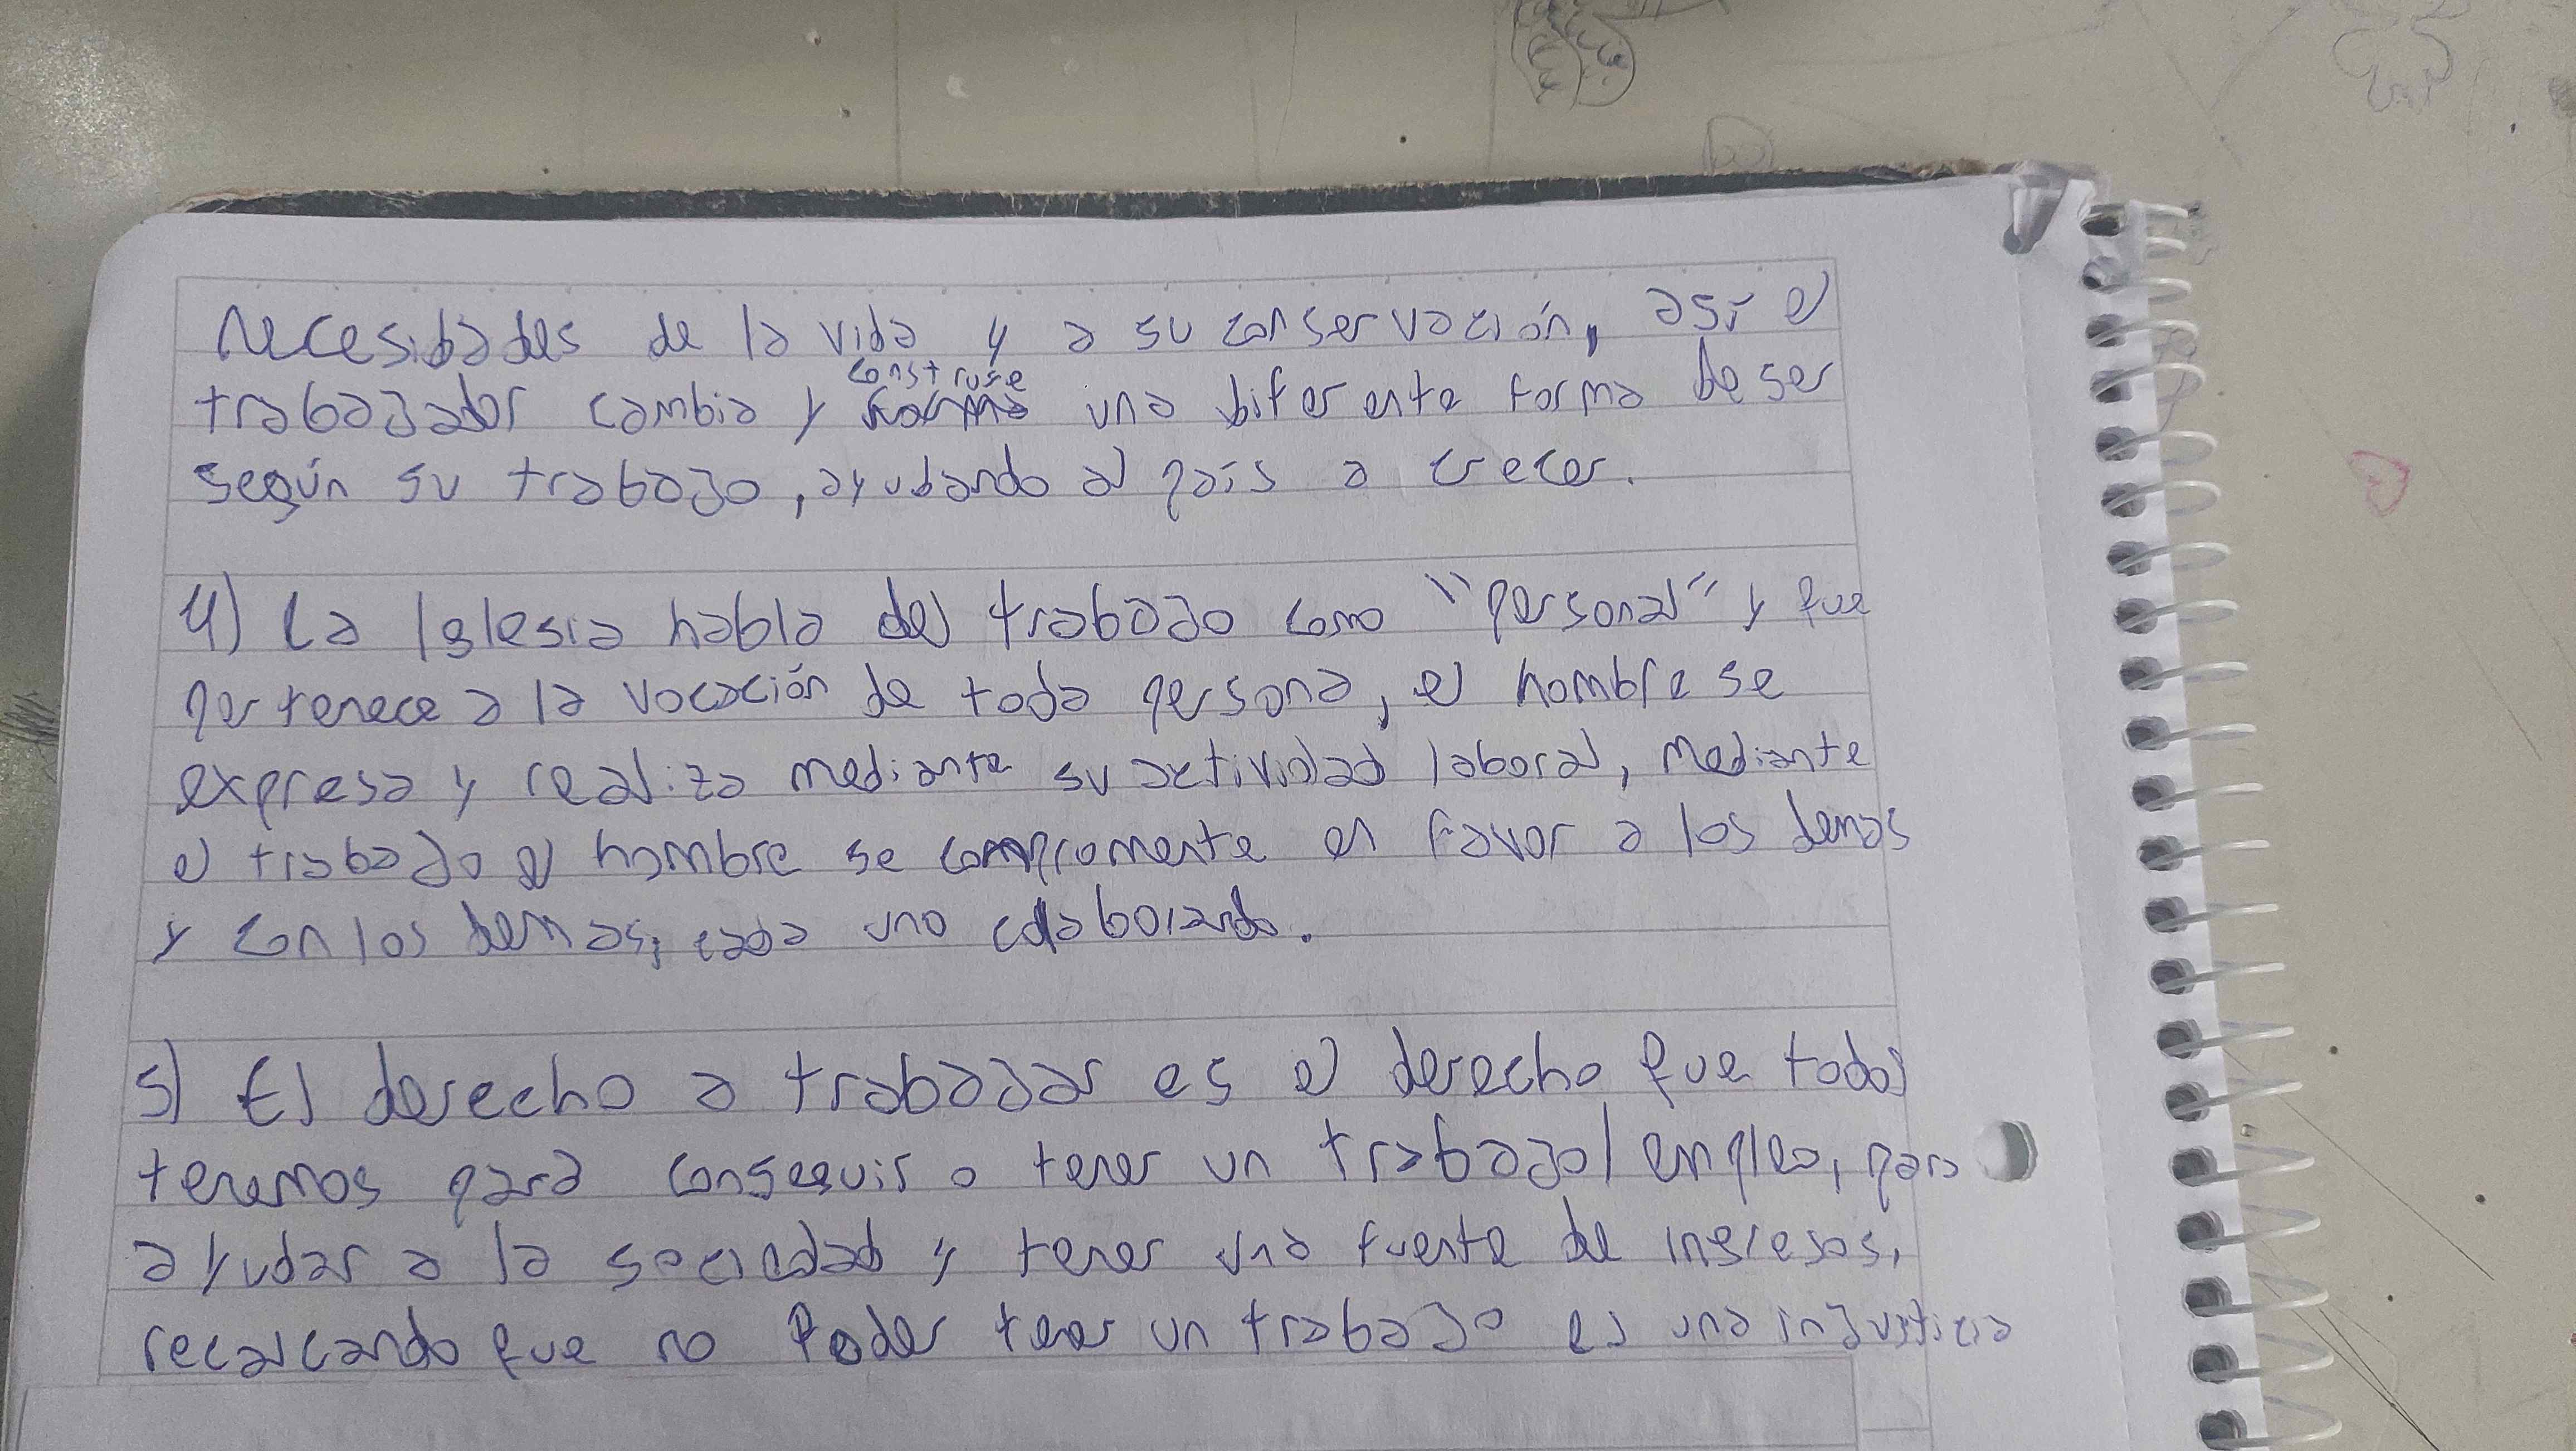 Necesidades de la vida y a su conservación, así el
construye
trabajador cambia y una diferente forma de ser
según su trabajo, ayudando al país a crecer.
4) La Iglesia habla del trabajo como "personal" y que
pertenece a la vocación de toda persona, el hombre se
expresa y realiza mediante su actividad laboral, mediante
el trabajo el hombre se compromente en favor a los demas
y con los demas, cada uno colaborando.
5) El derecho a trabajar es el derecho que todos
tenemos para conseguir o tener un trabajo/empleo, para
ayudar a la sociedad y tener una fuente de ingresos,
recalcando que no Poder tener un trabajo es una injusticia